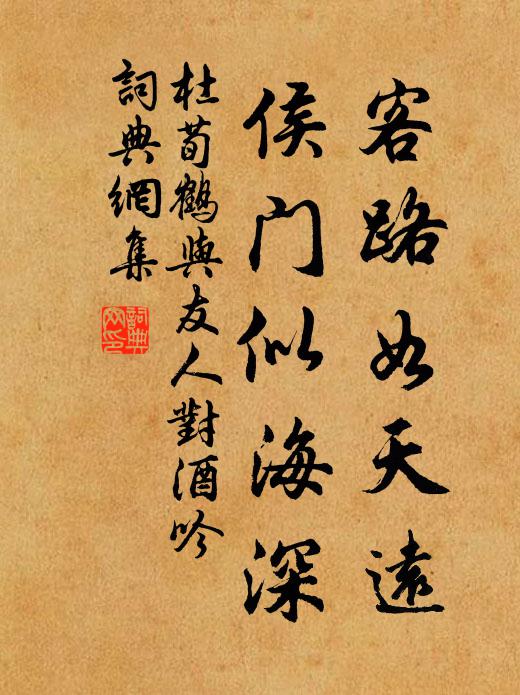 客路如天遠
侯門似海深
杜荀鶴與友人對酒吟
詞典網集
詞典網印